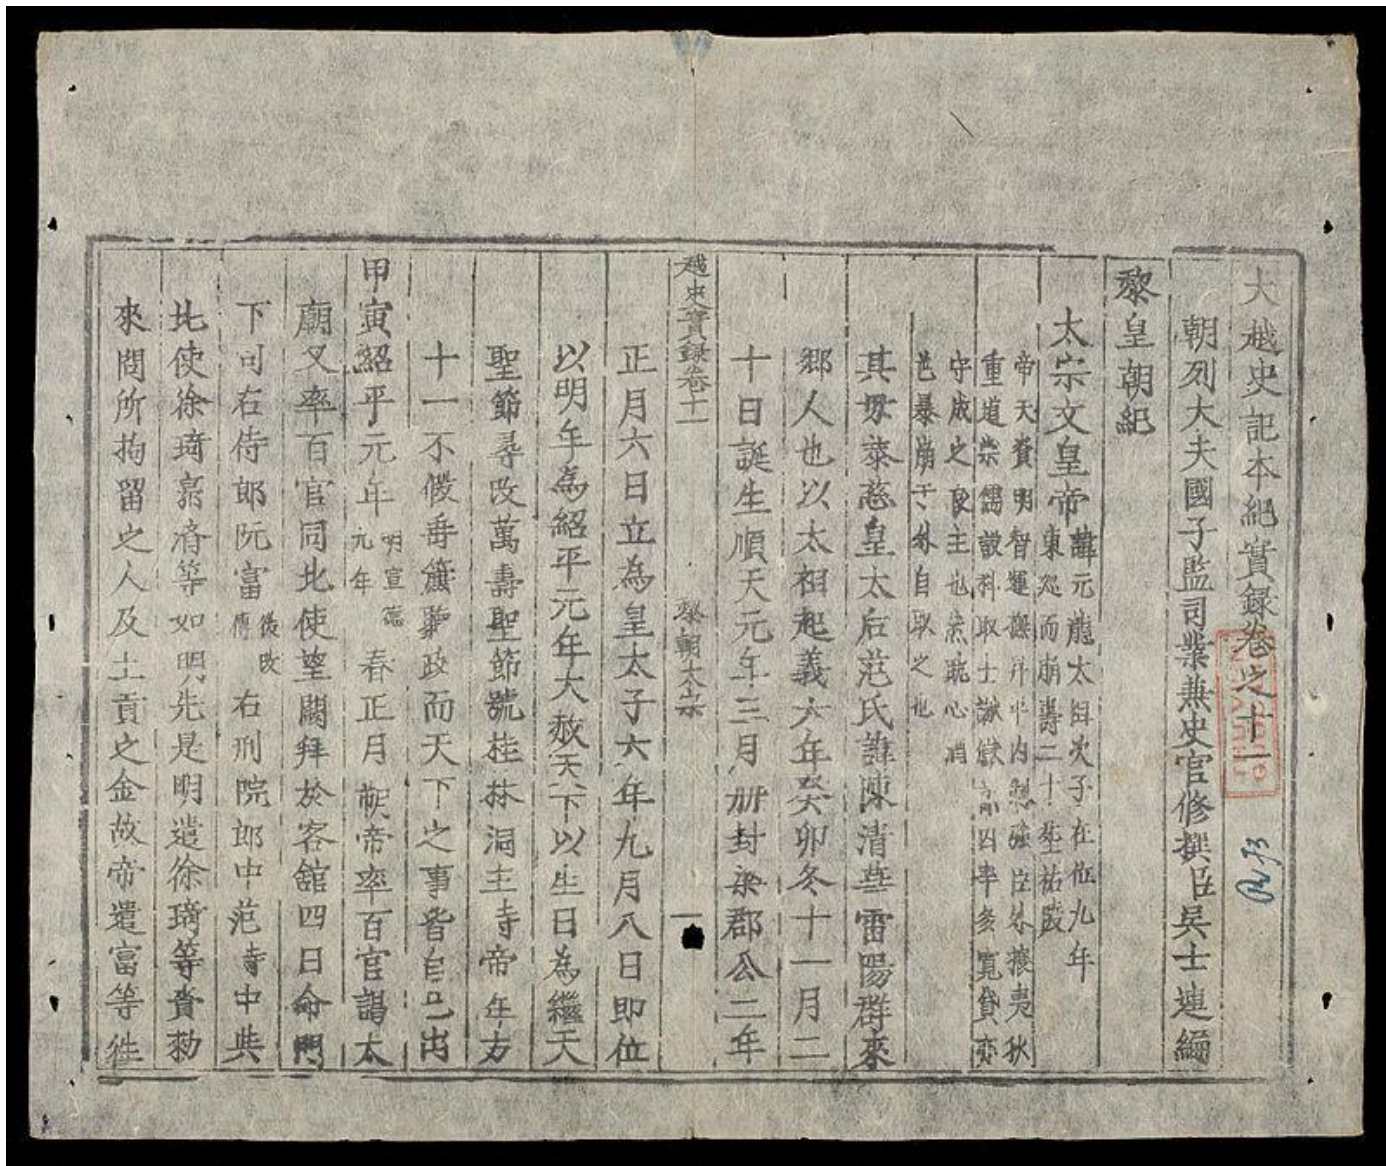 大越史記本紀實録卷之十一
朝列大夫國子監司業兼史官修撰臣吳士連編
黎皇朝紀
太宗文皇帝
諱元龍太祖次子在位九年
東巡而崩壽二十葬祐陵
帝天資明智運撫昇平内制強臣外攘夷狄
重道崇儒設科取士讞獄奏囚率多寛貸亦
守成之良主也然耽心酒
色暴崩于外自取之也
其母恭慈皇太后范氏諱陳清華雷陽群來
鄉人也以太祖起義六年癸卯冬十一月二
十日誕生順天元年三月册封梁郡公二年
越史實録卷十一
黎朝太宗
一
正月六日立為皇太子六年九月八日即位
以明年為紹平元年大赦天下以生日為繼天
聖節尋改萬壽聖節號桂林洞主時帝年方
十一不假垂簾聽政而天下之事皆自己出
甲寅紹平元年
明宣德
九年
春正月朔帝率百官謁太
廟又率百官同北使望闕拜於客舘四日命門
下司右侍郎阮富
後改
傳
右刑院郎中范時中與
北使徐琦郭濟等如明先是明遣徐琦等賫勑
來問所拘留之人及土貢之金故帝遣富等徃